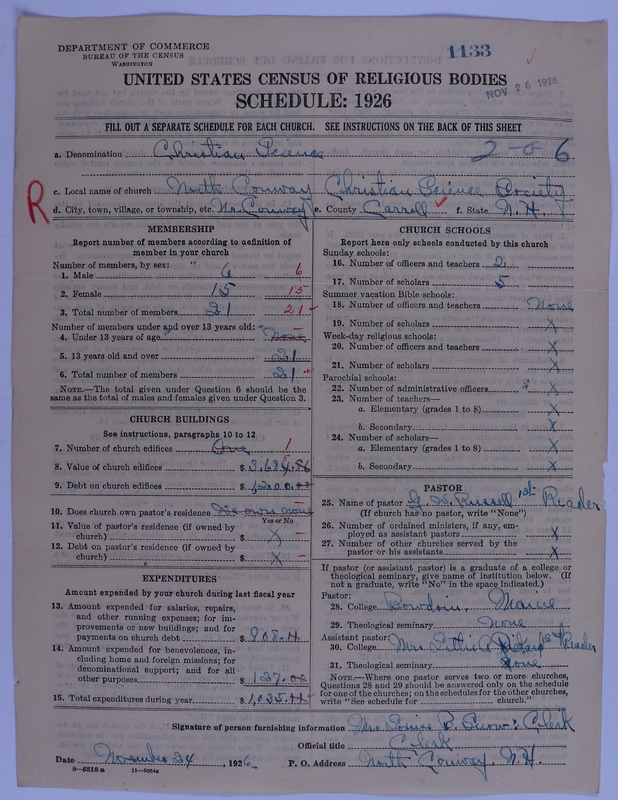 DEPARTMENT OF COMMERCE
BUREAU OF THE CENSUS
WASHINGTON
1133
UNITED STATES CENSUS OF RELIGIOUS BODIES
NOV 26 1926
SCHEDULE: 1926
FILL OUT A SEPARATE SCHEDULE FOR EACH CHURCH. SEE INSTRUCTIONS ON THE BACK OF THIS SHEET
a. Denomination Christian Science 2-0-6
c. Local name of church North Conway Christian Science Society
R
d. City, town, village, or township, etc. No. Conway e. County Carroll f. State N. H.
MEMBERSHIP
Report number of members according to definition of
member in your church
Number of members, by sex:
1. Male 6 6
2. Female 15 15
3. Total number of members 21 21
Number of members under and over 13 years old:
4. Under 13 years of age None
5. 13 years old and over 21
6. Total number of members 21
NOTE.—The total given under Question 6 should be
same as the total of males and females given under Question 3.
CHURCH BUILDINGS
See instructions, paragraphs 10 to 12
7. Number of church edifices One 1
8. Value of church edifices $
9. Debt on church edifices $ 1,200.00
10. Does church own pastor's residence
Yes or No
11. Value of pastor's residence (if owned by
church) $ X
12. Debt on pastor's residence (if owned by
church) $ X
EXPENDITURES
Amount expended by your church during last fiscal year
13. Amount expended for salaries, repairs,
and other running expenses; for im-
provements or new buildings; and for
payments on church debt $ 908.11
14. Amount expended for benevolences, in-
cluding home and foreign missions; for
denominational support; and for all
other purposes $ 127.00
15. Total expenditures during year $ 1,035.11
CHURCH SCHOOLS
Report here only schools conducted by this church
Sunday schools:
16. Number of officers and teachers 2
17. Number of scholars 5
Summer vacation Bible schools:
18. Number of officers and teachers None
19. Number of scholars X
Week-day religious schools:
20. Number of officers and teachers X
21. Number of scholars X
Parochial schools:
22. Number of administrative officers X
23. Number of teachers—
a. Elementary (grades 1 to 8) X
b. Secondary X
24. Number of scholars—
a. Elementary (grades 1 to 8) X
b. Secondary X
PASTOR
25. Name of pastor Russell 1st Reader
(If church has no pastor, write "None")
26. Number of ordained ministers, if any, em-
ployed as assistant pastors X
27. Number of other churches served by the
pastor or his assistants X
If pastor (or assistant pastor) is a graduate of a college or
theological seminary, give name of institution below. (If
not a graduate, write "No" in the space indicated.)
Pastor:
28. College Bowdoin, Maine
29. Theological seminary none
Assistant pastor:
30. College Mrs. 2nd Reader
31. Theological seminary None
NOTE.—Where one pastor serves two or more churches,
Questions 28 and 29 should be answered only on the schedule
for one of the churches; on the schedules for the other churches,
write "See schedule for church."
Signature of person furnishing information Mrs. Clerk
Official title Clerk
Date November 24, 1926 P. O. Address North Conway, N. H.
8—5518 a 11—9084c